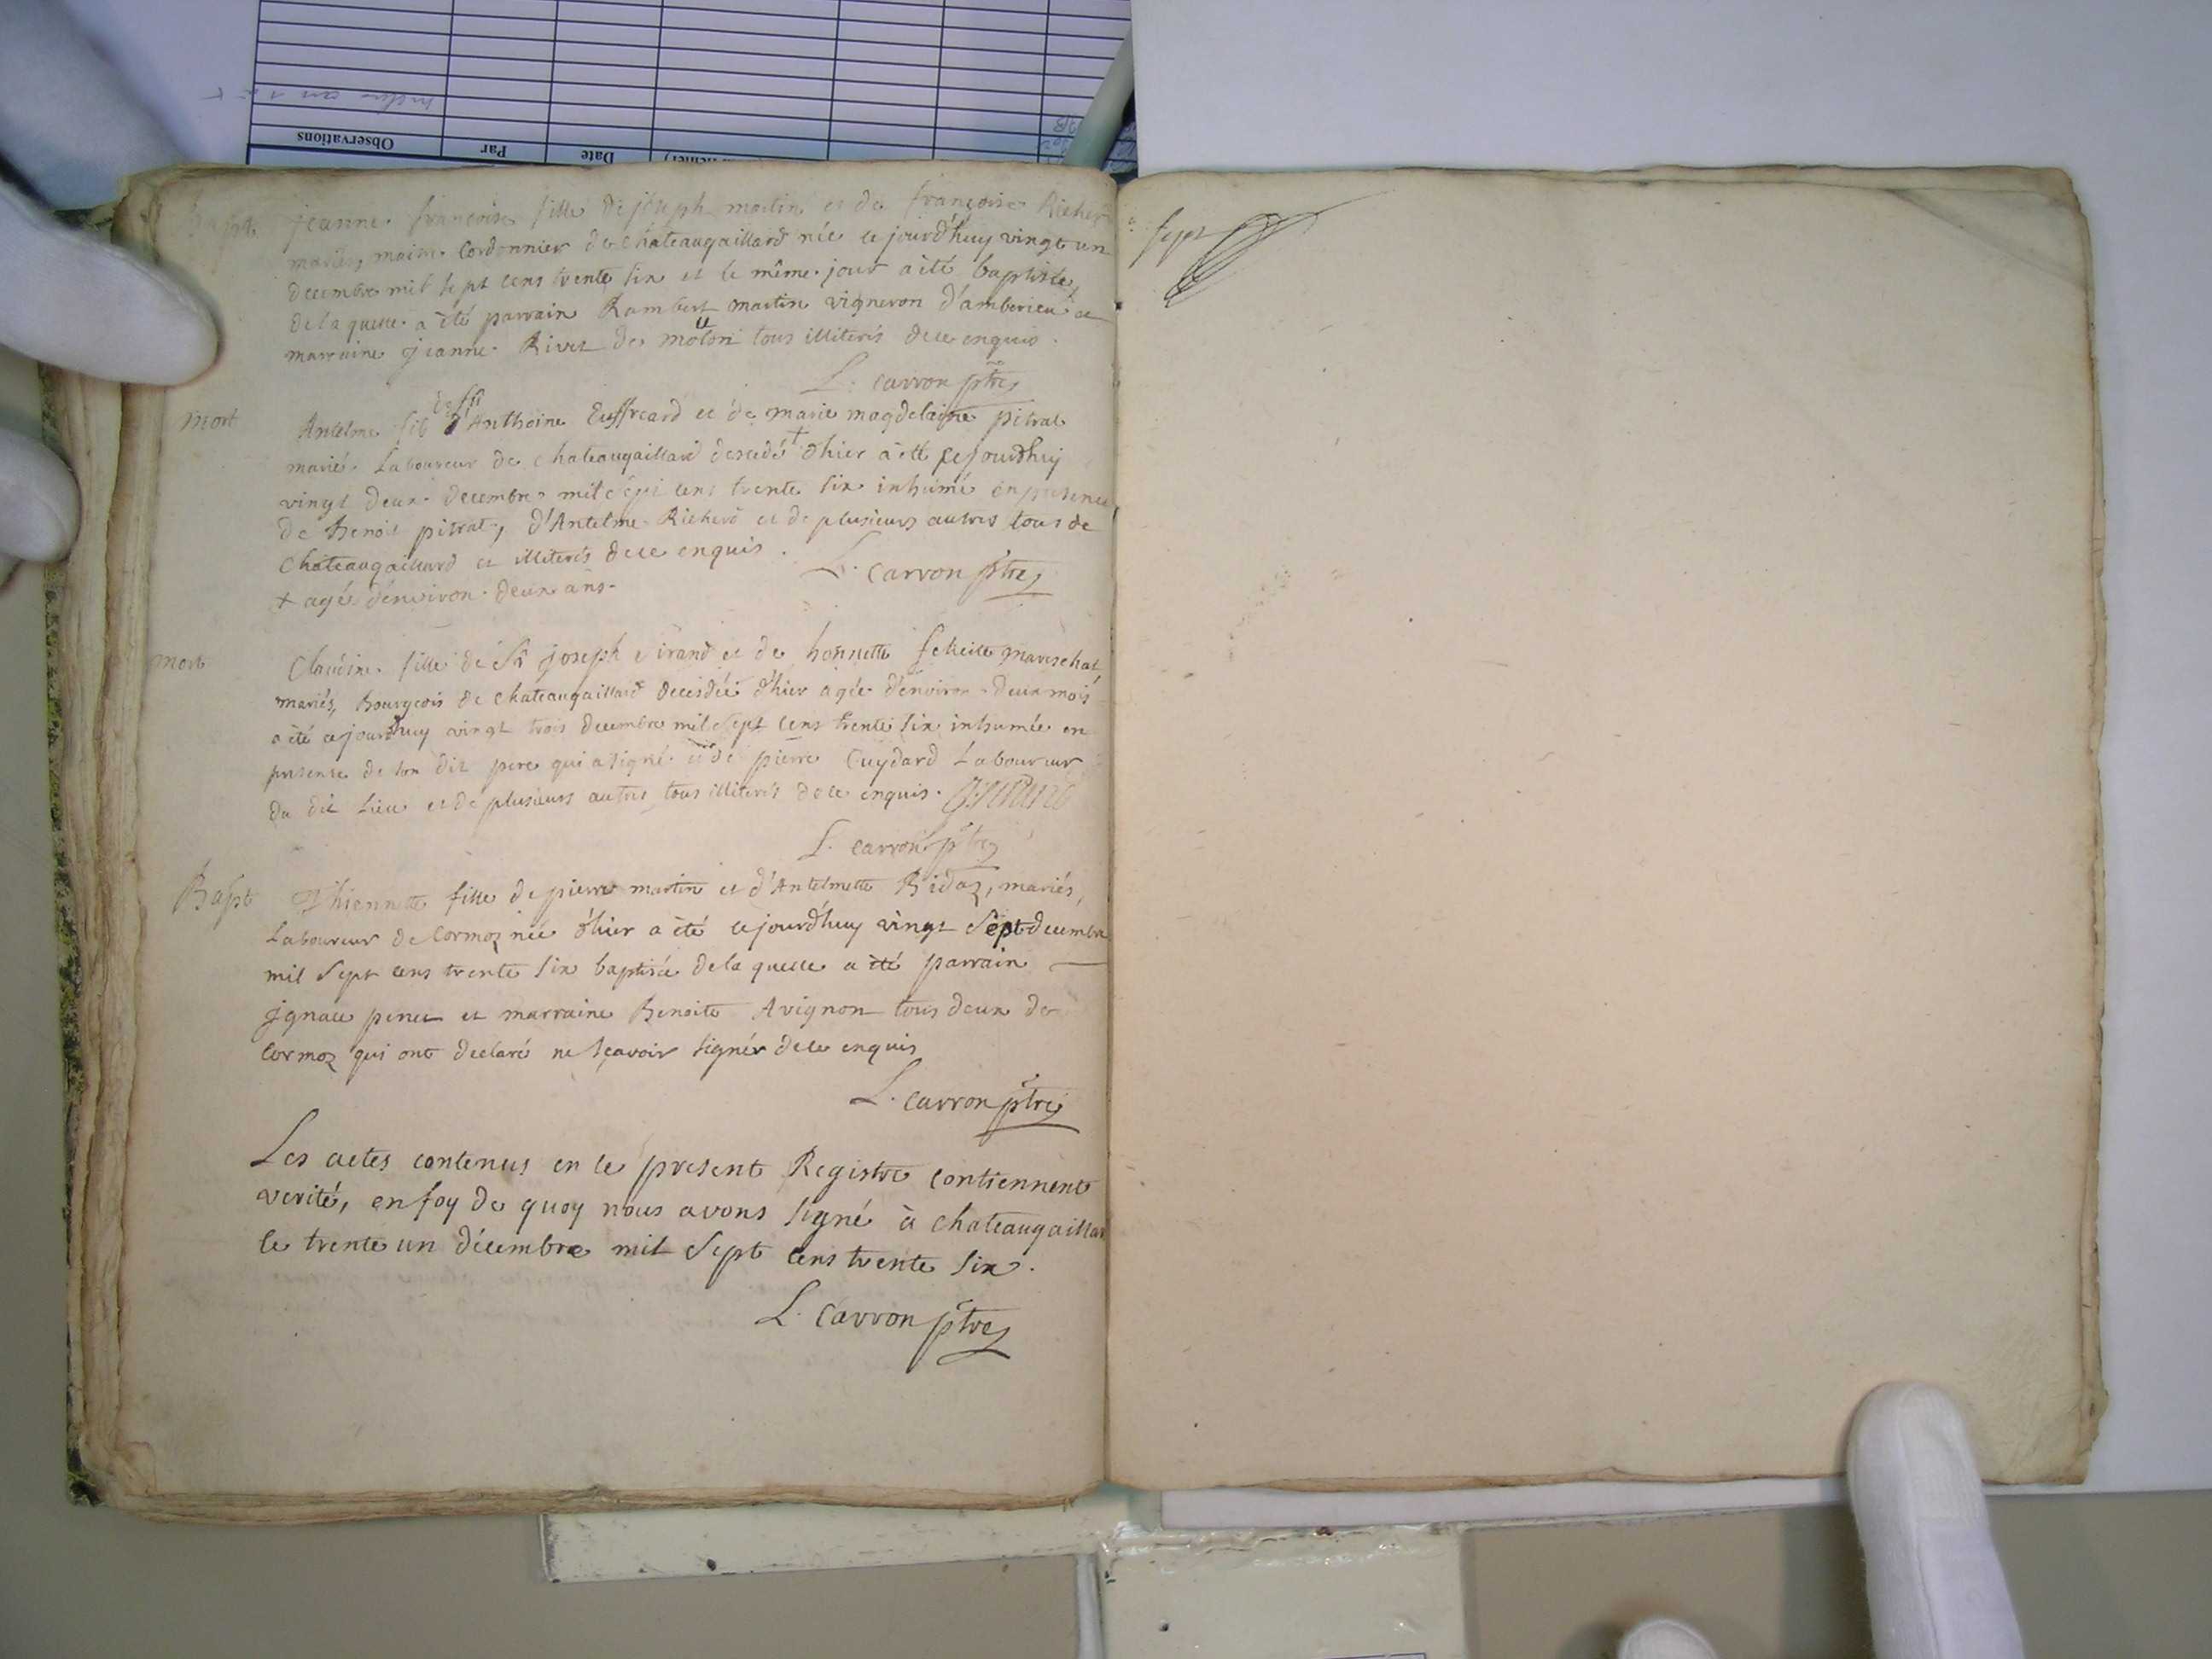 Observations
Par
Date
Bapt
jeanne francoise fille de joseph martin et de françoise Richerd
mariés, maitre Cordonnier de chateaugaillard née cejourd'huy vingt un
decembre mil sept cens trente six et le même jour a été baptisée,
de laquelle a été parrain Rambert martin vigneron d'amberieu et
marraine jeanne Rivet de molon tous illiterés de ce enquis.
L. carron ptre
mort
Antelme fils d'Anthoine Euffreard et de marie magdelaine pitrat
mariés Laboureur de chateaugaillard decedé + d'hier a été cejourdhuy
vingt deux decembre mil sept cens trente six inhumé en presence
de Benoit pitrat, d'Antelme Richerd et de plusieurs autres tous de
Chateaugaillard et illiterés de ce enquis.
L. carron ptre
+ agé d'environ deux ans.
mort
Claudine fille de Sr joseph sirand et de honnette fekeille mareschal
mariés, Bourgeois de chateaugaillard decedée d'hier agée d'environ deux mois
a été cejourdhuy vingt trois decembre mil sept cens trente six inhumée en
presence de son dit pere qui a signé et de pierre Cuydard Laboureur
du dit Lieu et de plusieurs autres tous illiterés de ce enquis. J. sirand
L. carron ptre
Bapt
Thiennette fille de pierre martin et d'Antelmette Bidaz, mariés,
Laboureur de Cormoz née d'hier a été cejourd'huy vingt Sept decembre
mil Sept cens trente six baptisée de laquelle a été parrain
jgnace penet et marraine Benoite Avignon tous deux de
Cormoz qui ont declaré ne sçavoir signér de ce enquis
L. carron ptre
Les actes contenus en le present Registre contiennent
verité, en foy de quoy nous avons signé à chateaugaillard
le trente un décembre mil Sept cens trente six.
L. Carron ptre
sept